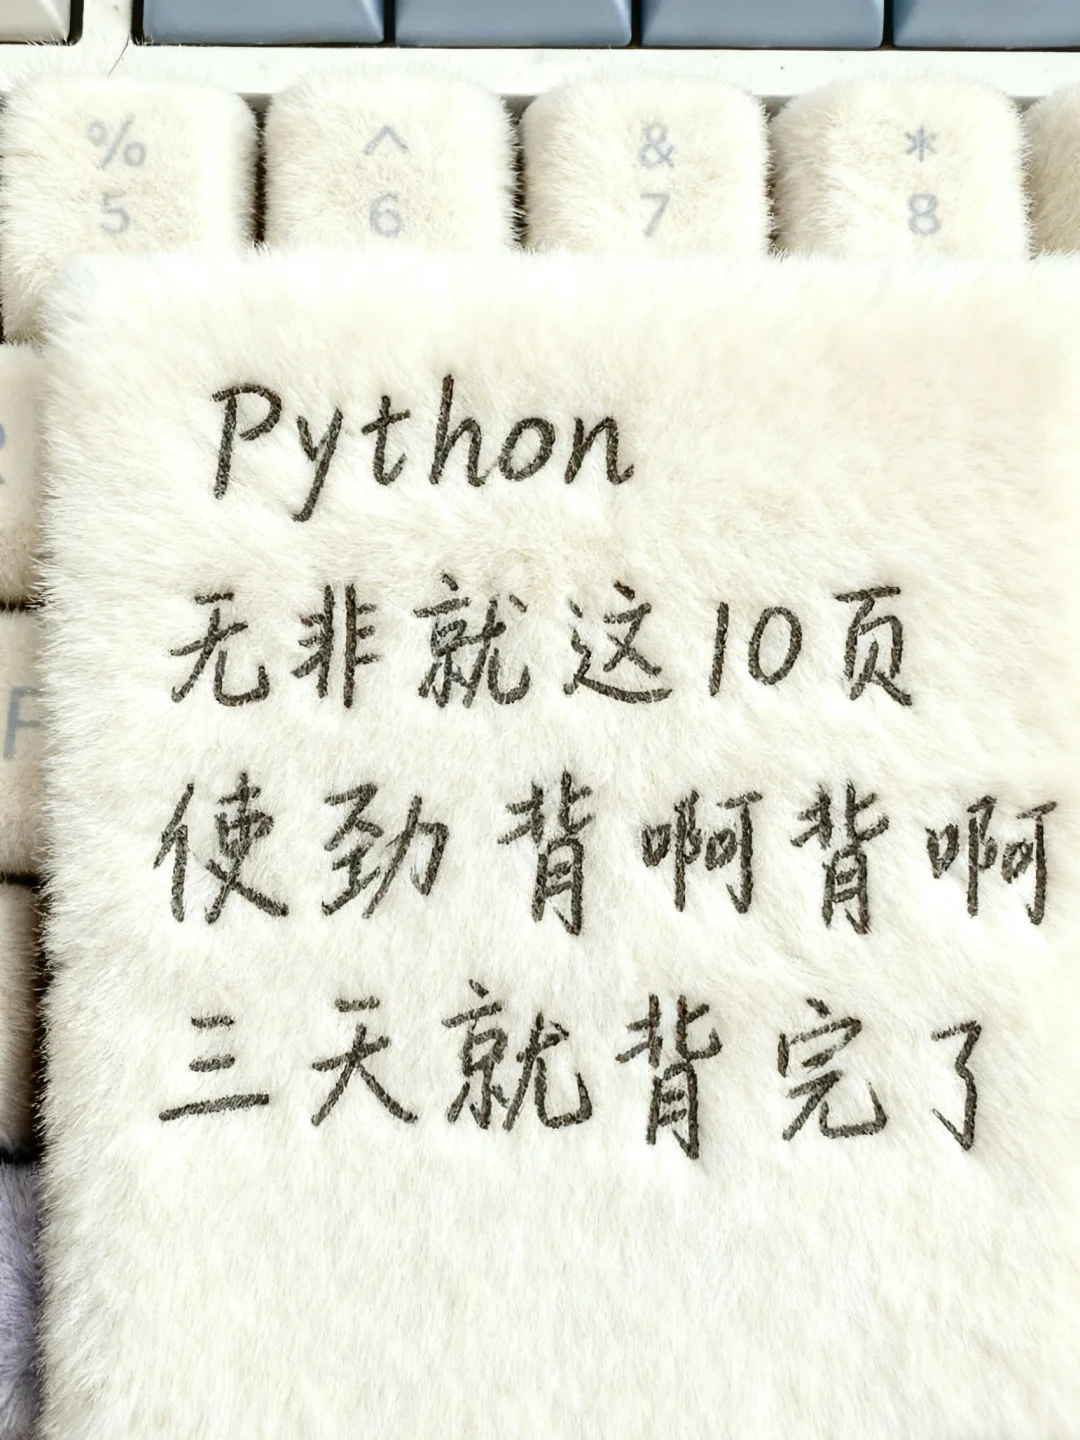 % ^ & *
5 6 7 8
Python
无非就这10页
F
使劲背啊背啊
三天就背完了